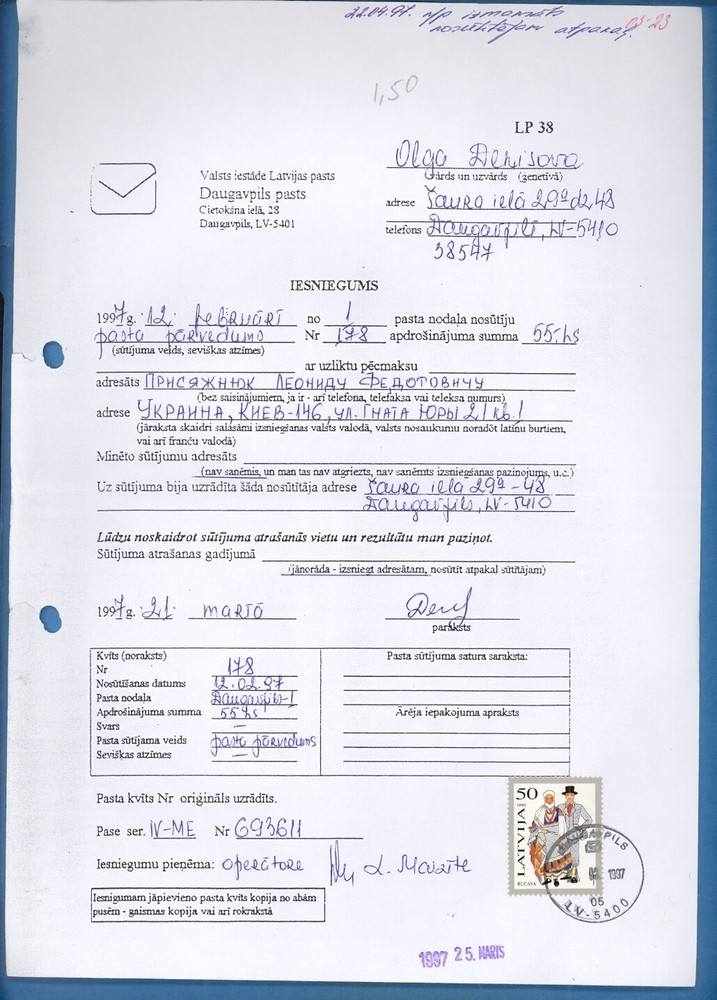 22.04.97. n/p izmaksāts
nosūtītājam atpakaļ.
05-23
1,50
LP 38
Valsts iestāde Latvijas pasts
Daugavpils pasts
Cietokšņa ielā, 28
Daugavpils, LV-5401
Olga Denisova
vārds un uzvārds (ģenetīvā)
adrese Šaura ielā 29ª dz 48
telefons Daugavpilī, LV-5410
38547
IESNIEGUMS
1997g. 12. februārī no 1 pasta nodaļa nosūtīju
pasta pārvedums Nr 178 apdrošinājuma summa 55.-Ls
(sūtījuma veids, sevišķas atzīmes)
ar uzliktu pēcmaksu
adresāts ПРИСЯЖНЮК ЛЕОНИДУ ФЕДОТОВИЧУ
(bez saīsinājumiem, ja ir - arī telefona, telefaksa vai teleksa numurs)
adrese УКРАИНА, КИЕВ-146, УЛ. ГНАТА ЮРЫ 21 кв.1
(jāraksta skaidri salasāmi izsniegšanas valsts valodā, valsts nosaukumu noradot latīņu burtiem,
vai arī franču valodā)
Minēto sūtījumu adresāts
(nav saņēmis, un man tas nav atgriezts, nav saņēmts izsniegšanas paziņojums, u.c.)
Uz sūtījuma bija uzrādīta šāda nosūtītāja adrese Šaura ielā 29ª-48
Daugavpilī, LV-5410
Lūdzu noskaidrot sūtījuma atrašanās vietu un rezultātu man paziņot.
Sūtījuma atrašanas gadījumā
(jānorāda - izsniegt adresātam, nosūtīt atpakaļ sūtītājam)
1997g. 21. martā
paraksts
Kvīts (noraksts)
Nr 178
Nosūtīšanas datums 12.02.97
Pasta nodaļa Daugavpils-1
Apdrošinājuma summa 55 Ls
Svars —
Pasta sūtījama veids pasta pārvedums
Sevišķas atzīmes —
Pasta sūtījuma satura saraksta:
Ārēja iepakojuma apraksts
Pasta kvīts Nr oriģināls uzrādīts.
Pase ser. IV-ME Nr 693611
Iesniegumu pieņēma: operātore
Iesnigumam jāpievieno pasta kvīts kopija no abām
pusēm - gaismas kopija vai arī rokrakstā
50
1993
LATVIJA
RUCAVA
DAUGAVPILS
1997
05
LV-5400
1997 25. MARTS